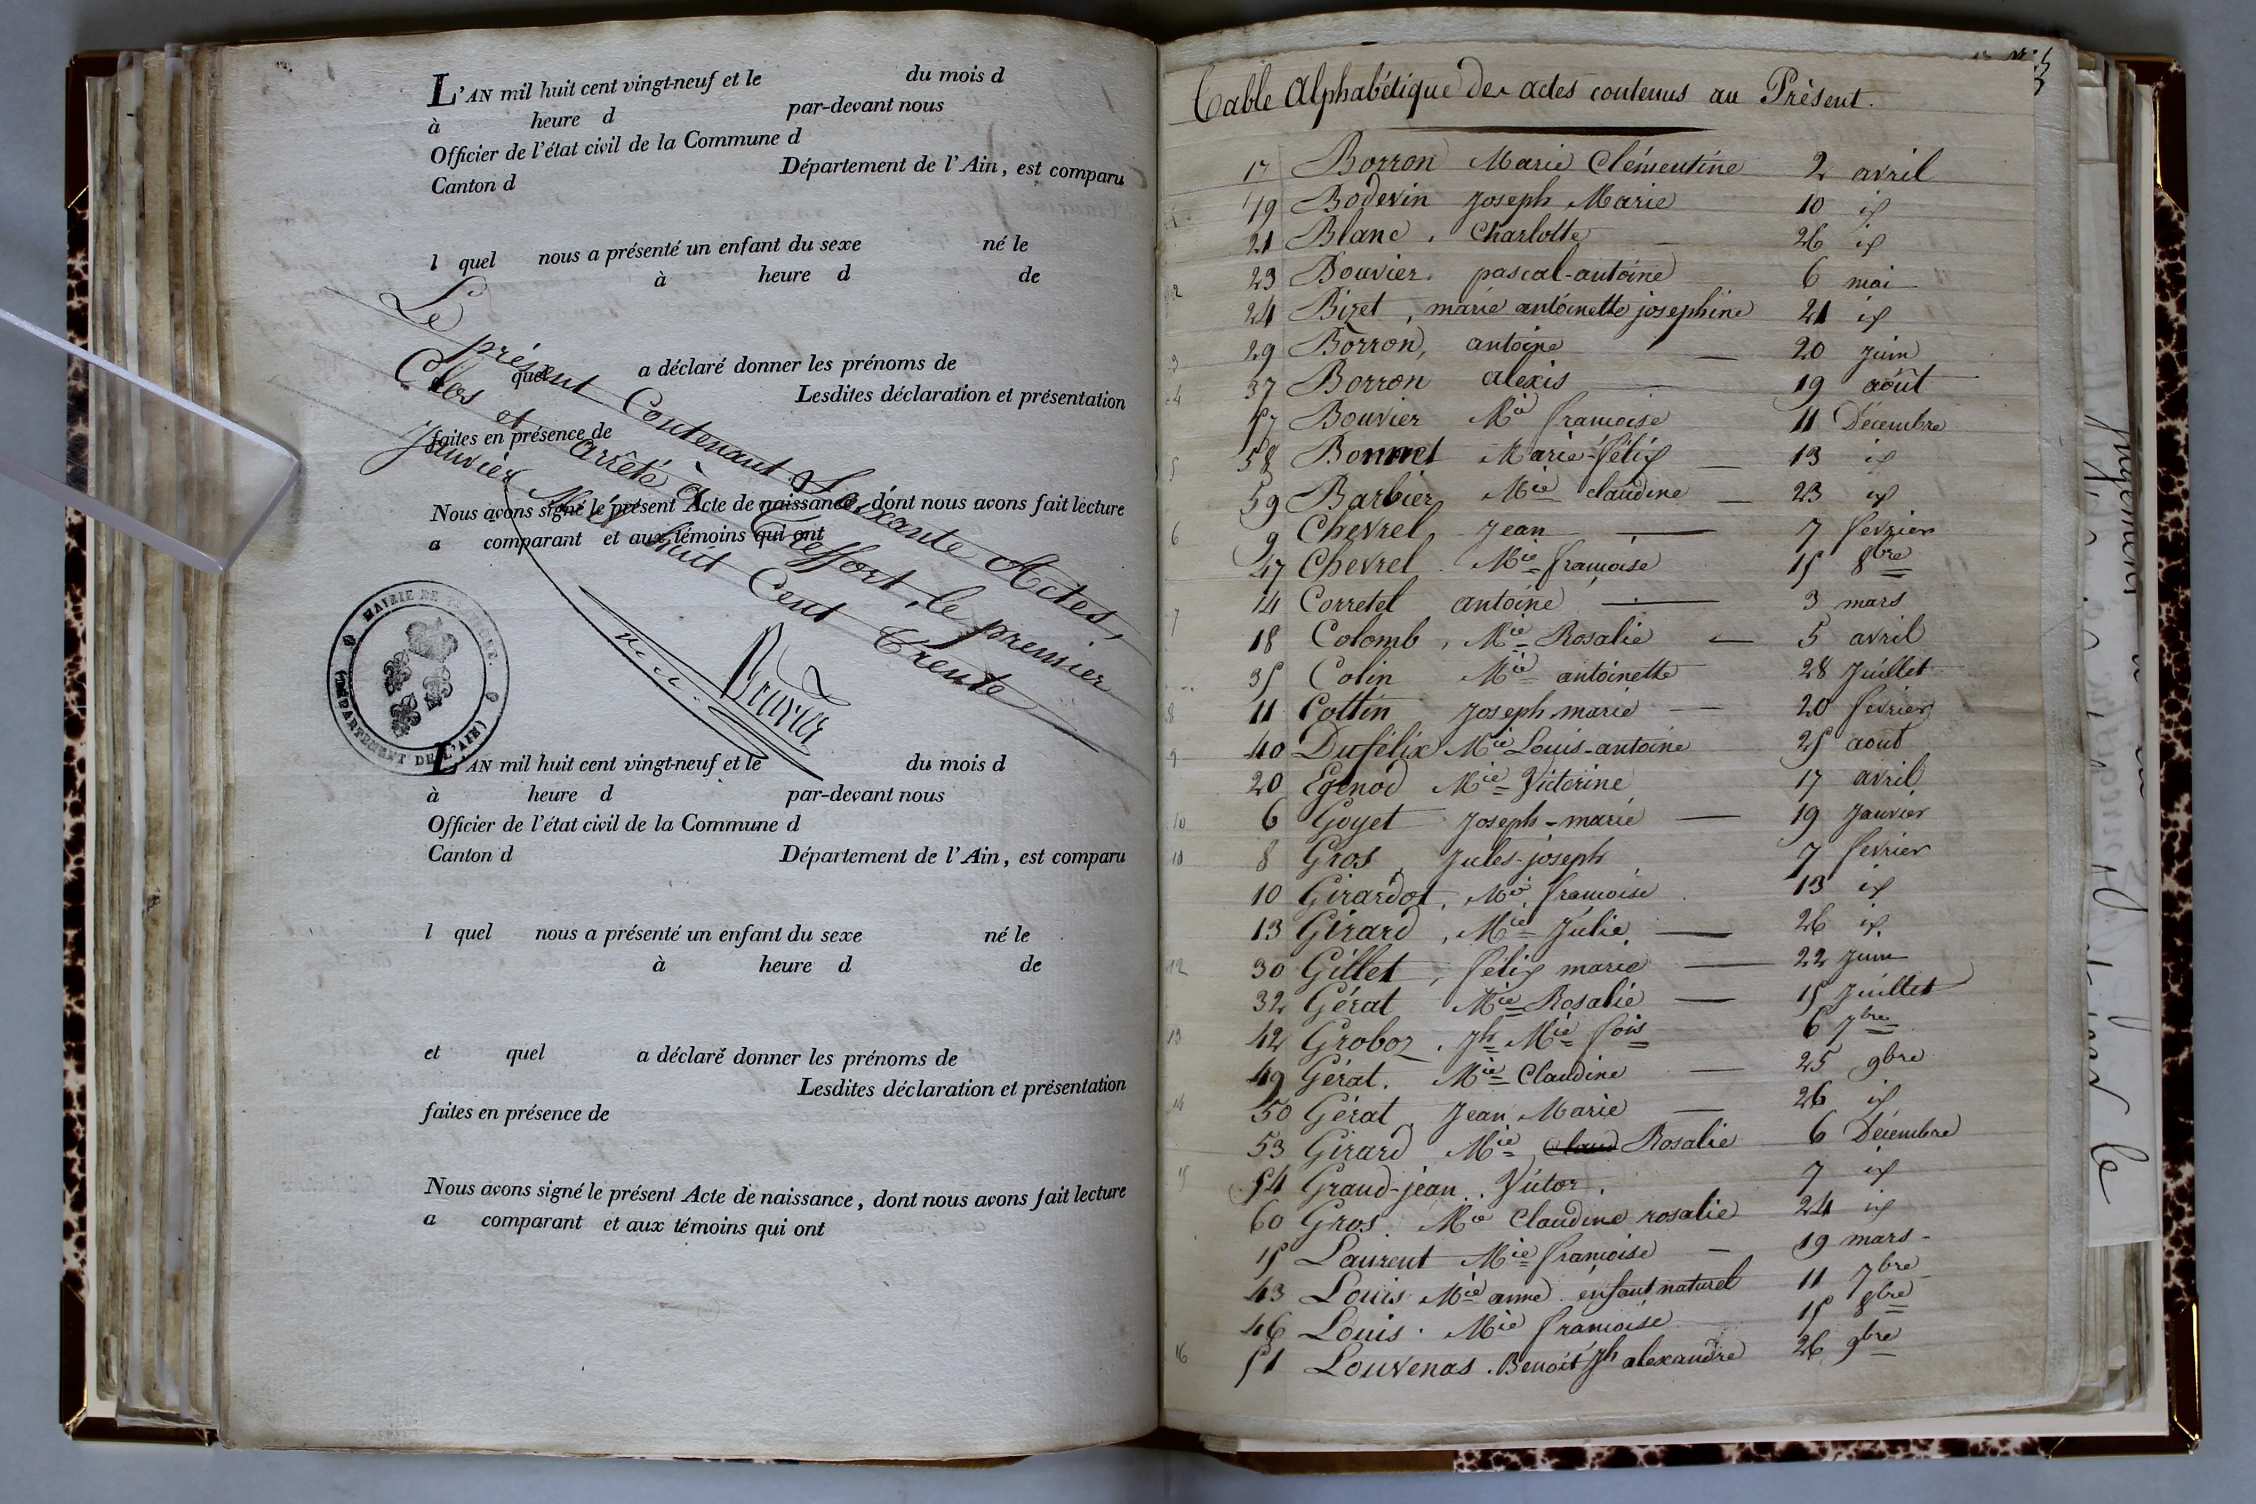 L'AN mil huit cent vingt-neuf et le du mois d
à heure d par-devant nous
Officier de l'état civil de la Commune d
Canton d Département de l'Ain, est comparu
l quel nous a présenté un enfant du sexe né le
à heure d de
quel a déclaré donner les prénoms de
Lesdites déclaration et présentation
faites en présence de
Nous avons signé le présent Acte de naissance, dont nous avons fait lecture
a comparant et aux témoins qui ont
Le présent Contenant Soixante Actes,
Clos et arrêté à Treffort, le premier
Janvier Mil huit Cent Trente
MAIRIE DE
(DÉPARTEMENT DE L'AIN)
L'AN mil huit cent vingt-neuf et le du mois d
à heure d par-devant nous
Officier de l'état civil de la Commune d
Canton d Département de l'Ain, est comparu
l quel nous a présenté un enfant du sexe né le
à heure d de
et quel a déclaré donner les prénoms de
Lesdites déclaration et présentation
faites en présence de
Nous avons signé le présent Acte de naissance, dont nous avons fait lecture
a comparant et aux témoins qui ont
Table Alphabétique des actes contenus au Présent.
17 Borron Marie Clémentine 2 avril
19 Bodevin Joseph Marie 10 id
21 Blanc, Charlotte 26 id
23 Bouvier, pascal-antoine 6 mai
24 Bizet, marie antoinette josephine 21 id
29 Borron, antoine 20 juin
37 Borron alexis 19 août
57 Bouvier Mie francoise 11 Décembre
58 Bonnet Marie-félix 13 id
59 Barbier Mie claudine 23 id
9 Chevrel Jean 7 février
47 Chevrel Mie françoise 15 8bre
14 Corretel antoine 3 mars
18 Colomb, Mie Rosalie 5 avril
35 Colin Mie antoinette 28 Juillet
11 Cottin Joseph marie 20 février
40 Dufélix Mie Louis-antoine 25 aout
20 Egenod Mie Victorine 17 avril
6 Goyet Joseph-marie 19 Janvier
8 Gros, Jules-joseph 7 février
10 Girardot, Mie francoise 13 id
13 Girard, Mie Julie 26 id
30 Gillet, félix marie 22 juin
32 Gérat Mie Rosalie 15 Juillet
42 Groboz, Jh Mie fois 6 7bre
49 Gérat. Mie Claudine 25 9bre
50 Gérat Jean Marie 26 id
53 Girard Mie Claud Rosalie 6 Décembre
54 Grand-jean, Victor. 7 id
60 Gros Mie Claudine rosalie 24 id
15 Laurent Mie françoise 19 mars
43 Louis Mie anne enfant naturel 11 7bre
46 Louis. Mie francoise 15 8bre
51 Louvenas. Benoit Jh alexandre 26 9bre